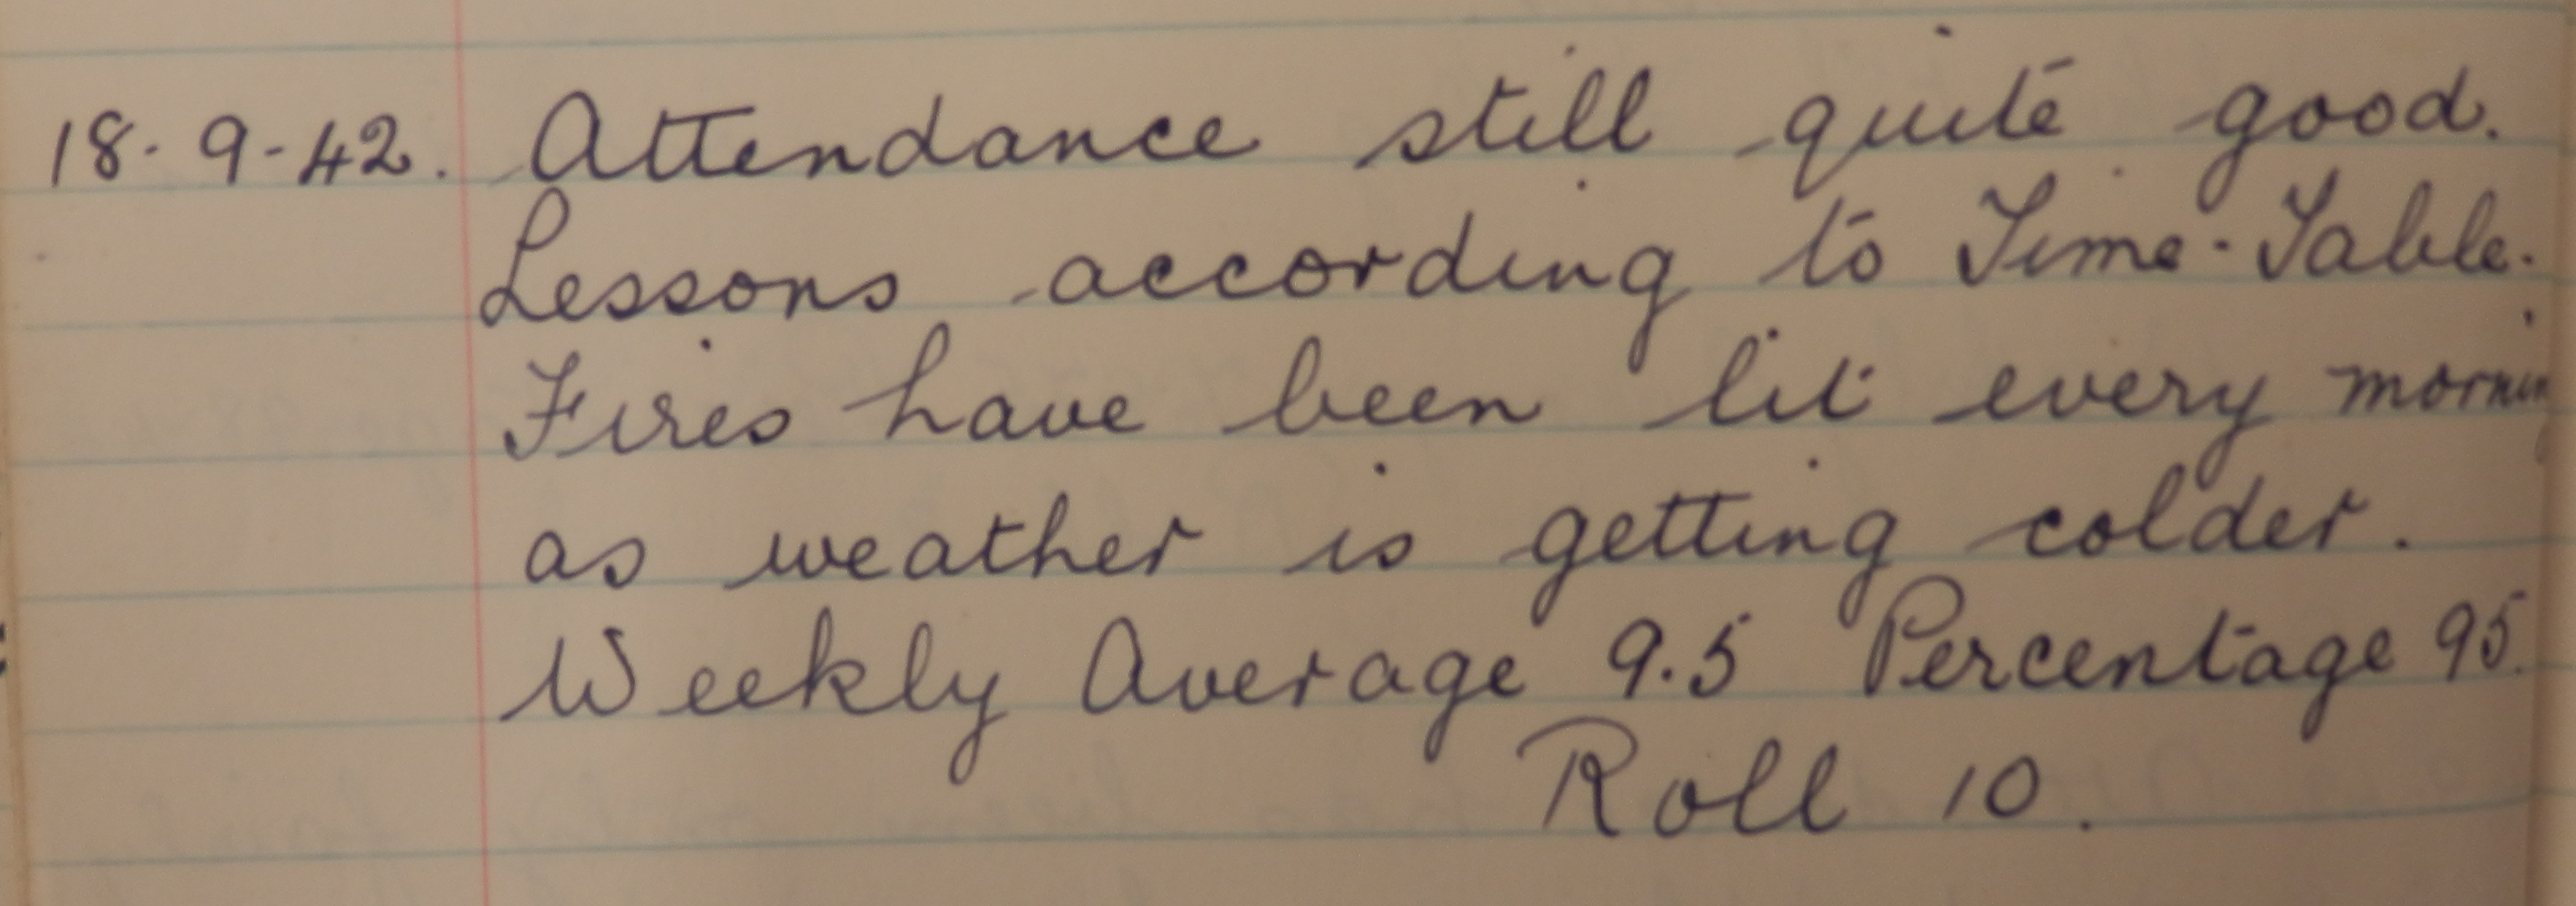 18-9-42. Attendance still quite good.
Lessons according to Time-Table.
Fires have been lit every morning
as weather is getting colder.
Weekly Average 9.5 Percentage 95.
Roll 10.